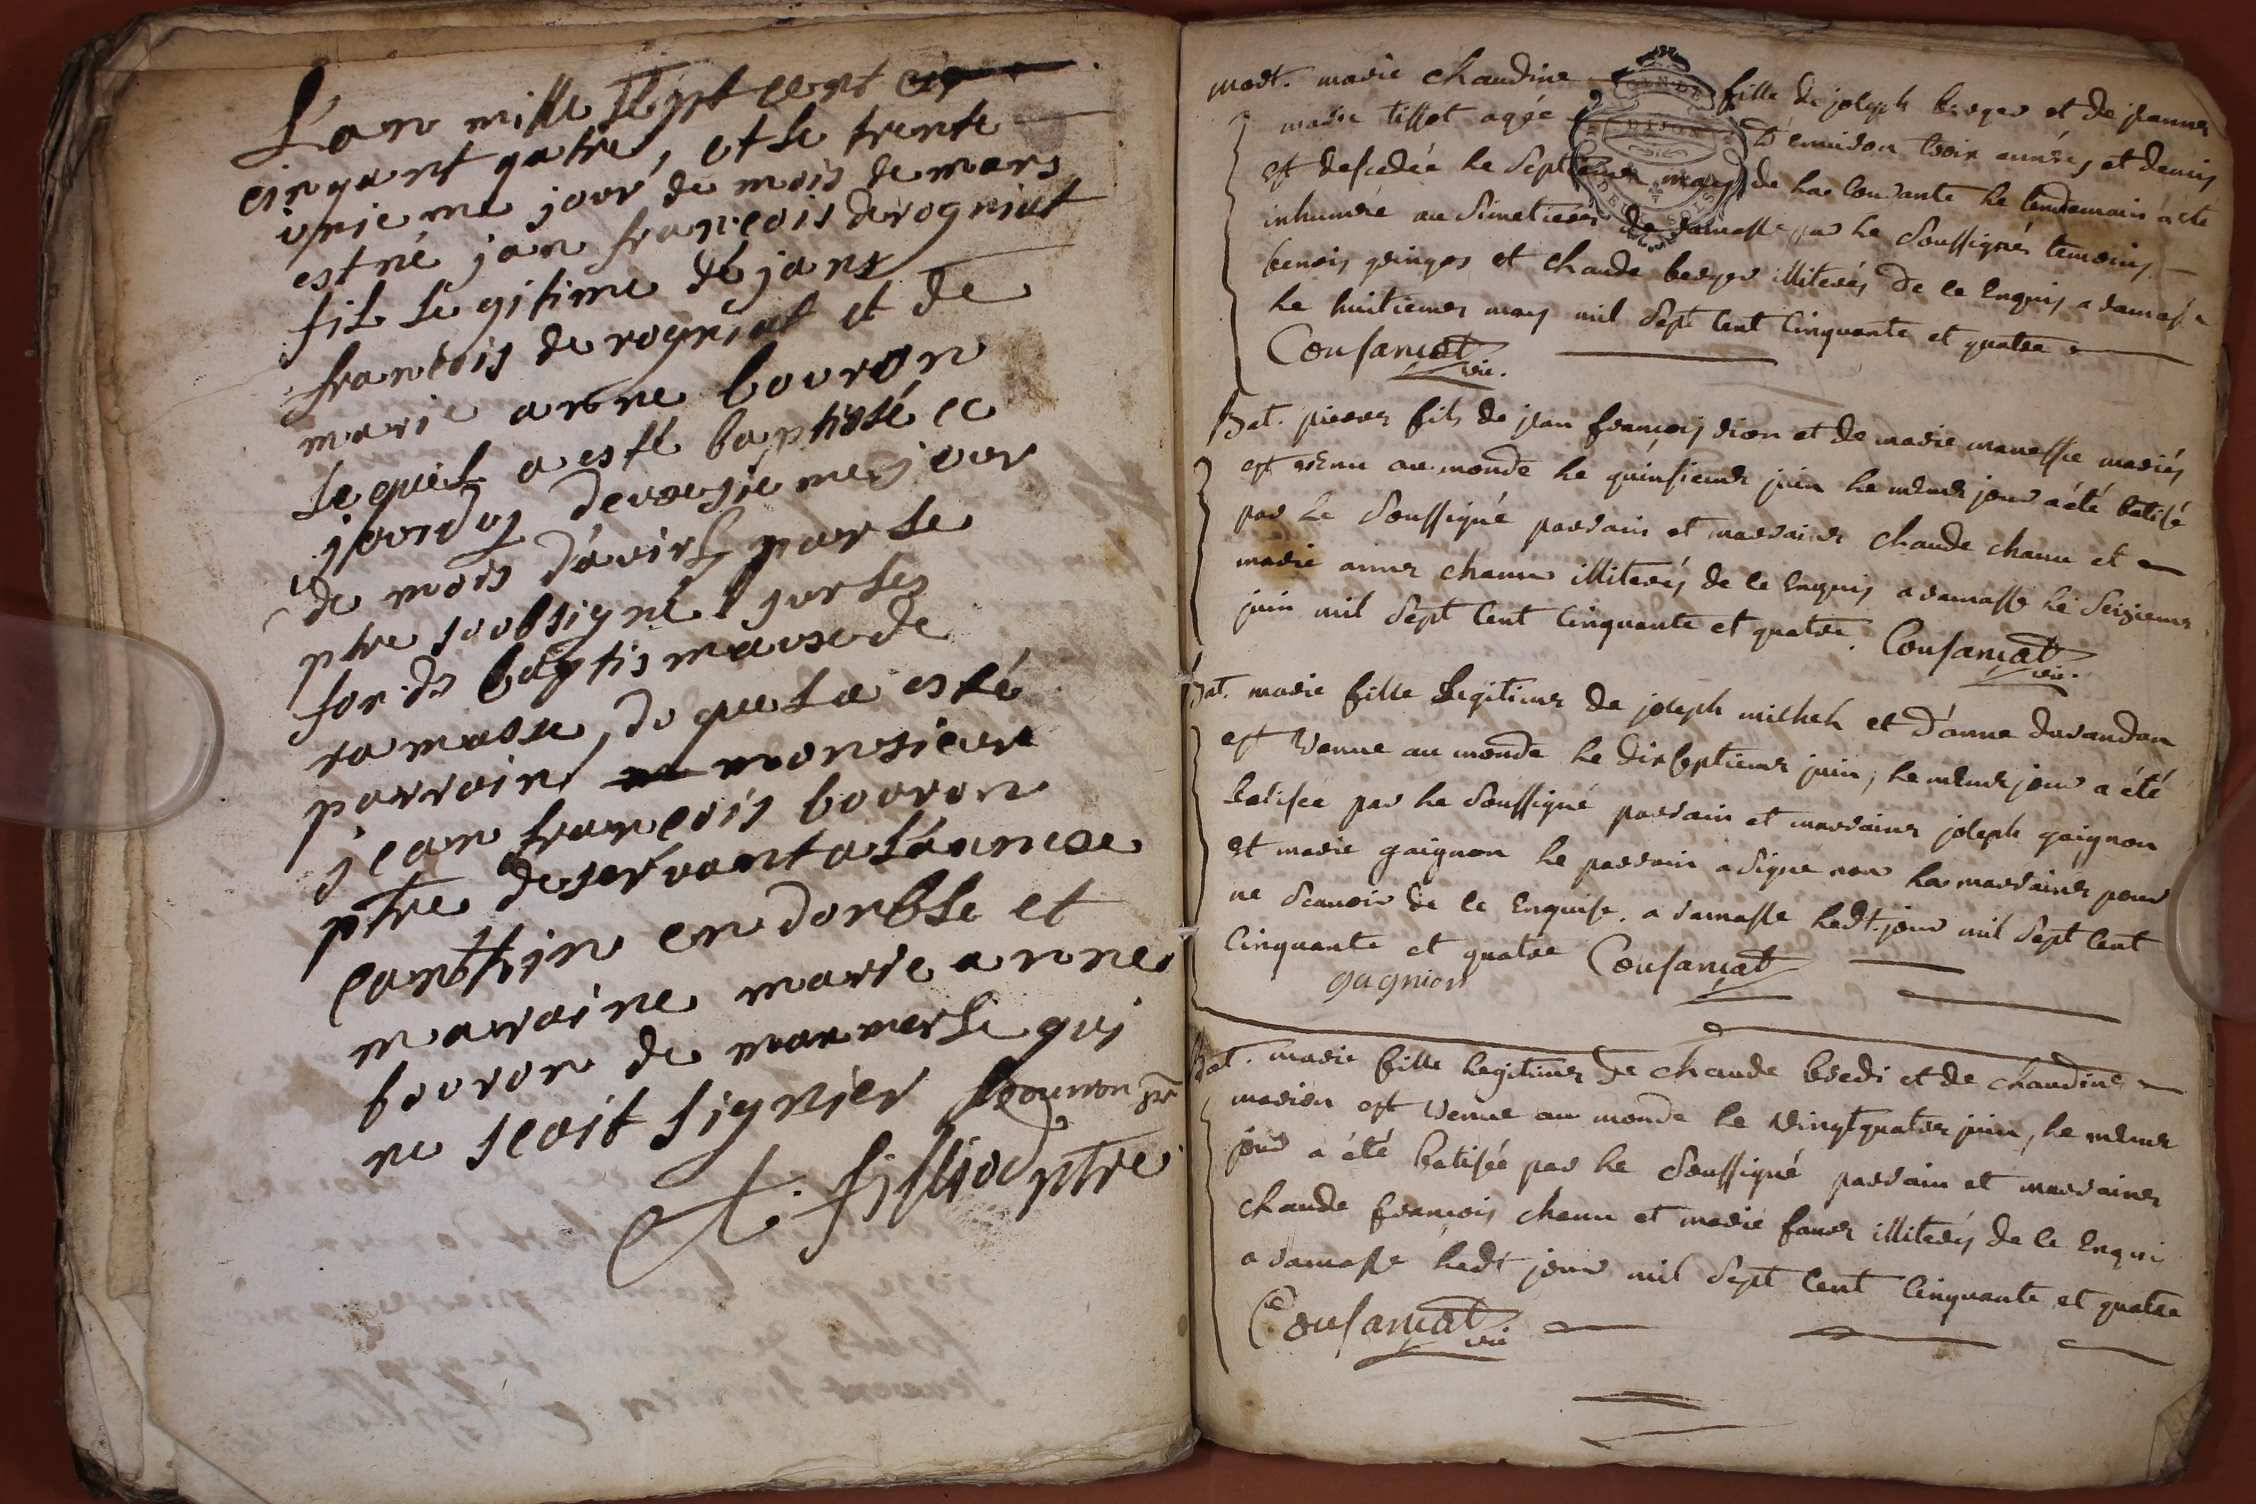 L'an mille sept cent
cinqant qatre, et le trente
unieme jour de mois de mars
est né jan francois derogniat
fils legitime de jans
francois de rogniat et de
marie anne bouron
le quel a esté baptisé ce
jourduy deuxsiemes jour
de mois d'avirs par le
ptre soubsigné sur les
fonds baptismause de
ramasse, du quel a esté
parrain monsieur
jean francois bouron
ptre deservant a
en dorble et
maraine marie anne
bouron de marmerle qui
ne scait signier bouron ptre
ptre
mort. marie claudine fille de joseph berger et de jeanne
marie tissot agée D'environ trois années et demis
est descedée le septieme may de la courante le lendemain a été
inhumée au simetiere de ramasse par le soussigné temoins
benois gringos et claude berger illiterés de ce enquis a ramasse
le huitieme may mil sept cent cinquante et quatre
Cousançat vic.
Bat. pierre fils de jean françois rion et de marie manessie mariés
est venu au monde le quinsieme juin le meme jour a été batisé
par le soussigné parrain et marraine claude chanu et
marie anne chanu illiterés de ce enquis a ramasse le seizieme
juin mil sept cent cinquante et quatre. Cousançat vic.
Bat. marie fille legitime de joseph michel et d'anne durandon
est venue au monde le dixseptieme juin, le meme jour a été
batisée par le soussigné parrain et marraine joseph gaignon
et marie gaignon le parrain a signé non la marraine pour
ne scavoir de ce enquise. a ramasse ledt. jour mil sept cent
cinquante et quatre Cousançat
gagnion
Bat. marie fille legitime de claude bredi et de claudine
marion est venue au monde le vingtquatre juin, le meme
jour a été batisée par le soussigné parrain et marraine
claude françois chanu et marie favre illiterés de ce enqui
a ramasse ledt jour mil sept cent cinquante et quatre
Cousançat vic